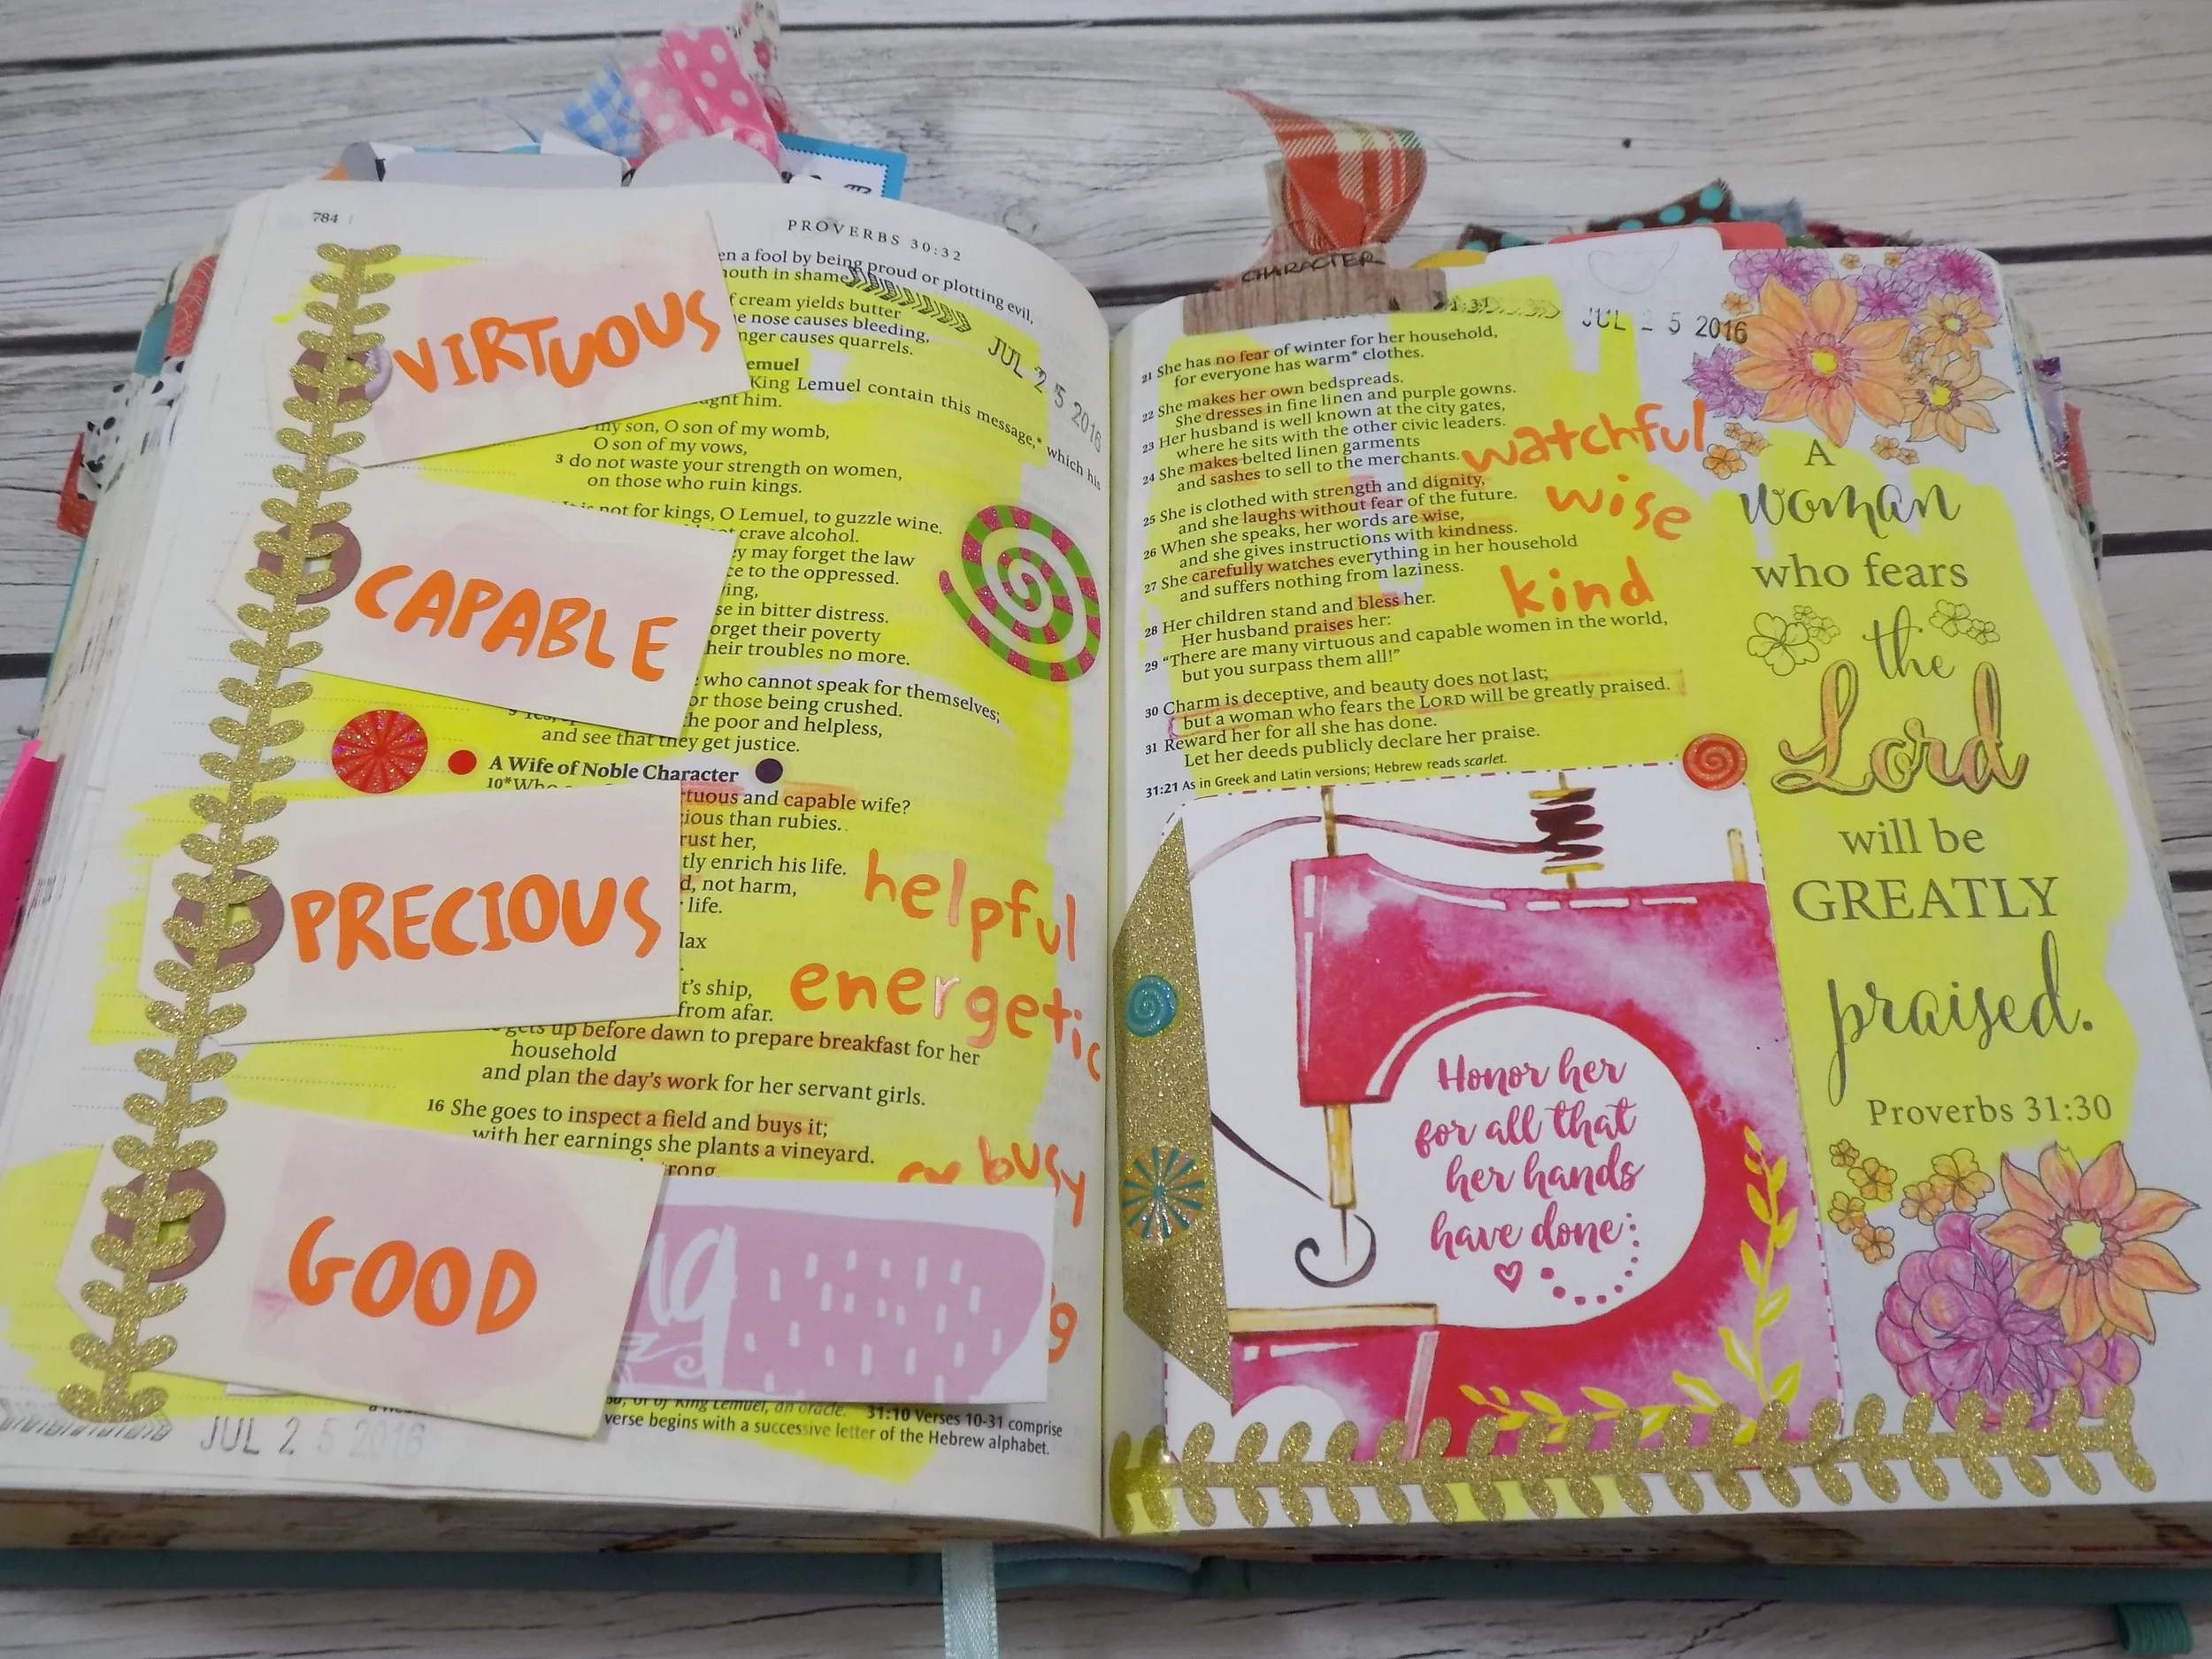 784
PROVERBS 30:32
VIRTUOUS
CAPABLE
PRECIOUS
GOOD
en a fool by being proud or plotting evil,
outh in shame
f cream yields butter
e nose causes bleeding,
nger causes quarrels.
JUL 25 2016
emuel
King Lemuel contain this message,* which his
ght him.
my son, O son of my womb,
O son of my vows,
3 do not waste your strength on women,
on those who ruin kings.
not for kings, O Lemuel, to guzzle wine.
crave alcohol.
ey may forget the law
ce to the oppressed.
ing,
se in bitter distress.
orget their poverty
heir troubles no more.
who cannot speak for themselves;
or those being crushed.
he poor and helpless,
and see that they get justice.
A Wife of Noble Character
10*Who
tuous and capable wife?
ious than rubies.
rust her,
tly enrich his life.
d, not harm,
life.
helpful
lax
energetic
t's ship,
from afar.
gets up before dawn to prepare breakfast for her
household
and plan the day's work for her servant girls.
16 She goes to inspect a field and buys it;
with her earnings she plants a vineyard.
rong,
busy
31:10 Verses 10-31 comprise
verse begins with a successive letter of the Hebrew alphabet.
JUL 25 2016
CHARACTER
JUL 25 2016
21 She has no fear of winter for her household,
for everyone has warm* clothes.
22 She makes her own bedspreads.
She dresses in fine linen and purple gowns.
23 Her husband is well known at the city gates,
where he sits with the other civic leaders.
24 She makes belted linen garments
and sashes to sell to the merchants.
watchful
25 She is clothed with strength and dignity,
and she laughs without fear of the future.
wise
26 When she speaks, her words are wise,
and she gives instructions with kindness.
27 She carefully watches everything in her household
and suffers nothing from laziness.
kind
28 Her children stand and bless her.
Her husband praises her:
29 “There are many virtuous and capable women in the world,
but you surpass them all!”
30 Charm is deceptive, and beauty does not last;
but a woman who fears the LORD will be greatly praised.
31 Reward her for all she has done.
Let her deeds publicly declare her praise.
31:21 As in Greek and Latin versions; Hebrew reads scarlet.
Honor her
for all that
her hands
have done
A
woman
who fears
the
Lord
will be
GREATLY
praised.
Proverbs 31:30